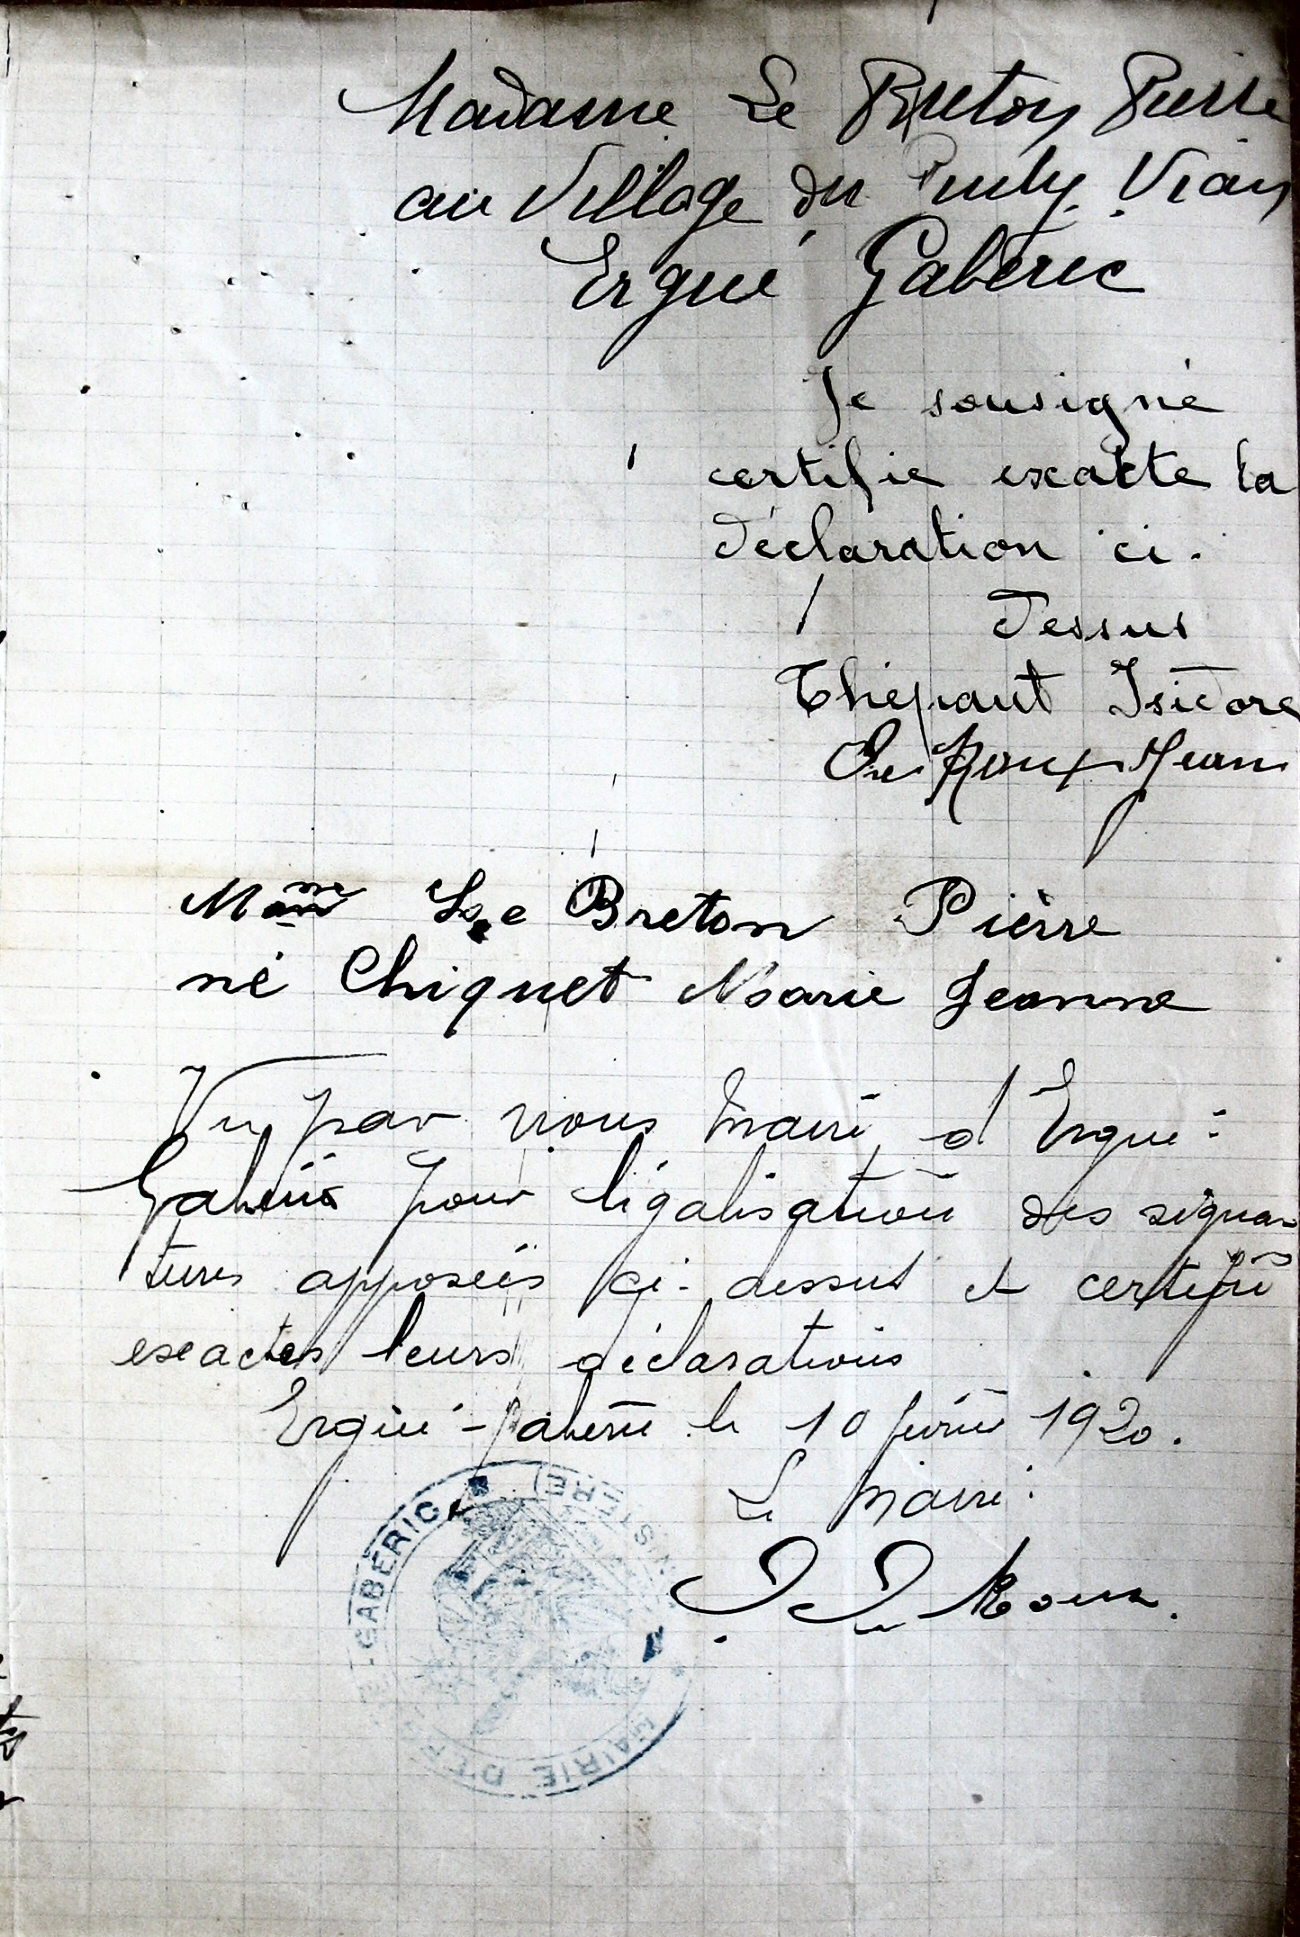 Madame Le Breton Pierre
au Village du Vian
Ergué Gabéric
Je sousigné
certifie exacte la
déclaration ci-
dessus
Thépaut Isidore
Le Roux Jean
Mme Le Breton Pièrre
né Chiquet Marie Jeanne
Vu par nous Maire d'Ergué-
Gabéric pour légalisation des signa-
tures apposées ci-dessus et certifié
exactes leurs déclarations
Ergué-Gabéric le 10 février 1920.
Le Maire:
Le Roux.
MAIRIE D'ERGUÉ-GABÉRIC (FINISTÈRE)